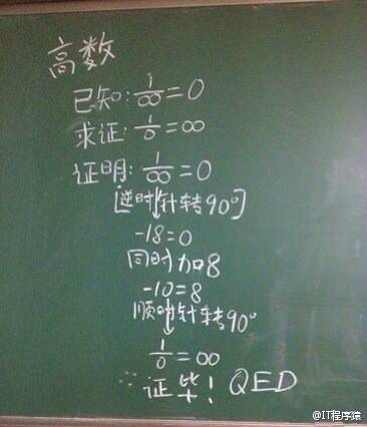 高数
已知:1/∞=0
求证:1/0=∞
证明:1/∞=0
[逆时针转90°]
-18=0
同时加8
-10=8
顺时针转90°
1/0=∞
∴证毕！QED
@IT程序猿